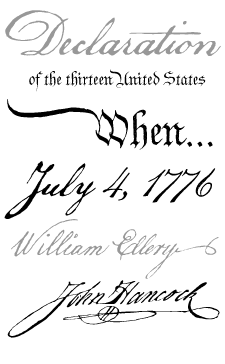 Declaration
of the thirteen United States
When...
July 4, 1776
William Ellery
John Hancock